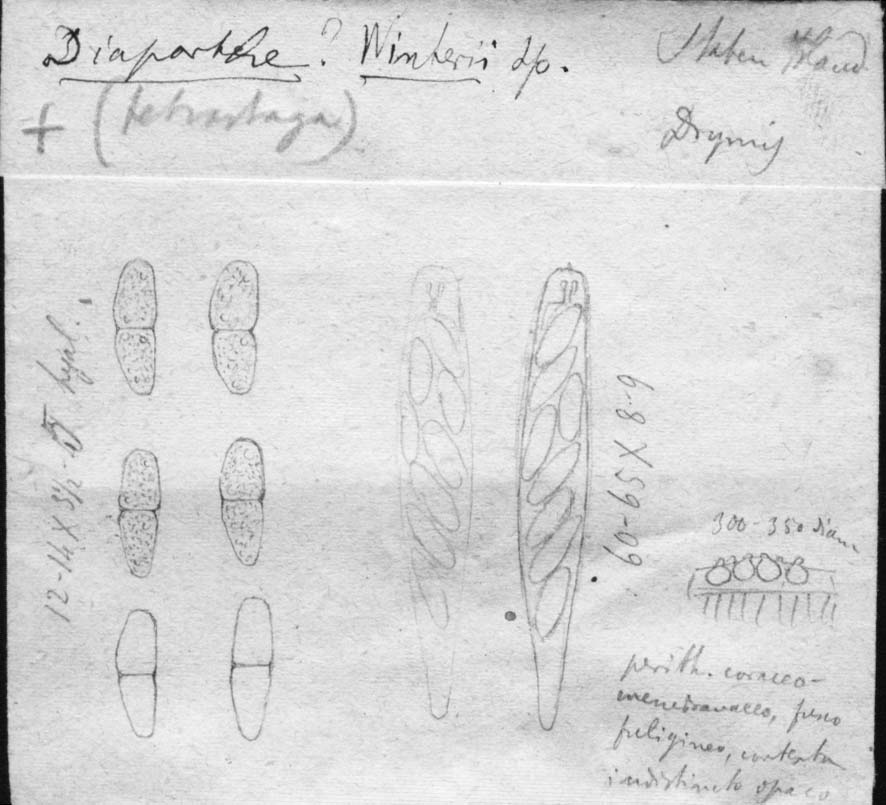 Diaporthe ? Winterii sp.
Staten Island
+ (tetrastaga)
Drymis
12-14 X 3½-5 hyal.
60-65 X 8-9
300-350 diam
perith. coraceo-
membranaceo, fusco
fuligineo, contextu
indistincto opaco